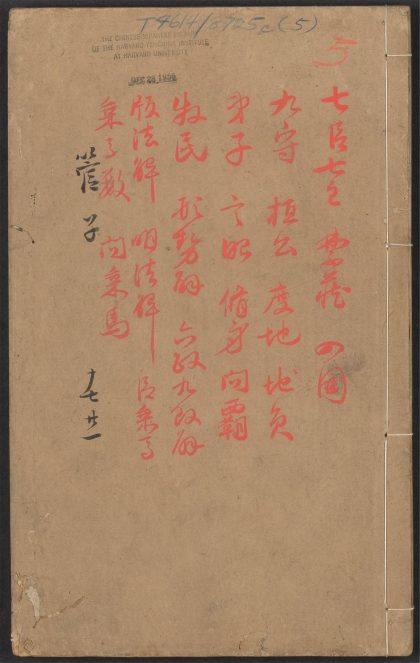 T4614/8725c(5)
THE CHINESE-JAPANESE LIBRARY
OF THE HARVARD-YENCHING INSTITUTE
AT HARVARD UNIVERSITY
5
七臣七主 禁藏 入國
九守 桓公 度地 地員
弟子 言昭 脩身 問霸
牧民 形勢解 立政九敗解
版法解 明法解 臣乘馬
乘馬數 問乘馬
管子 十七 廿一